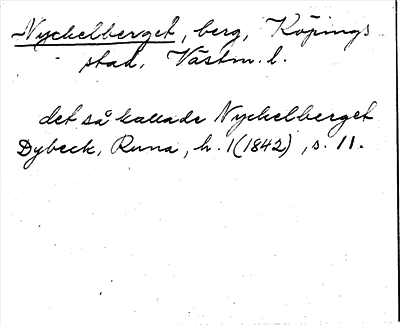 Nyckelberget, berg, Köpings
stad, Västm. l.
det så kallade Nyckelberget
Dybeck, Runa, h. 1 (1842), s. 11.